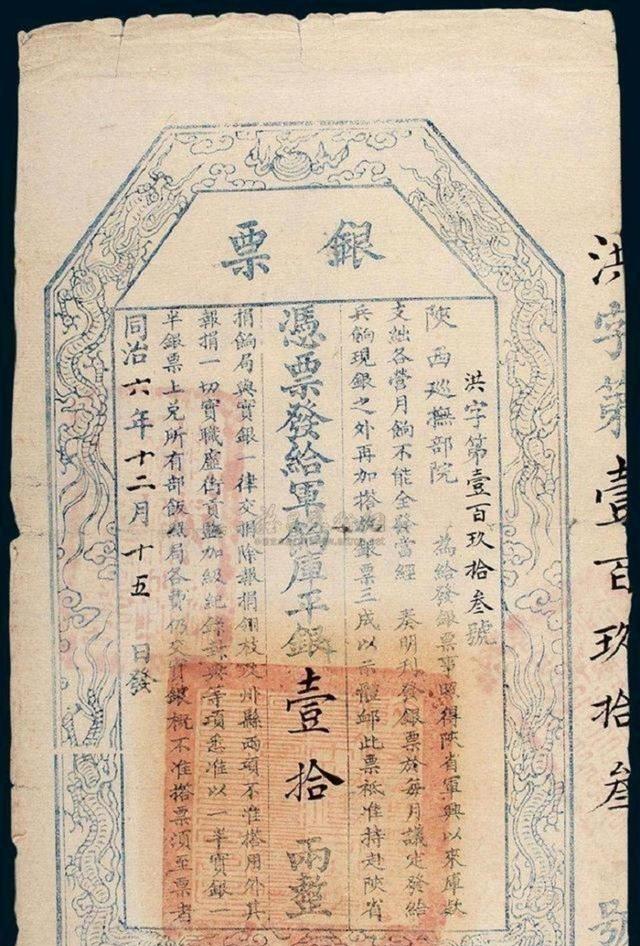 銀票
洪字第壹百玖拾叁號
陝西巡撫部院 為給發銀票事照得陝省軍興以來庫款
支絀各營月餉不能全發當經 奏明刊發銀票於每月議定發給
兵餉現銀之外再加搭放銀票三成以示體卹此票祗准持赴陝省
憑票發給軍餉庫平銀壹拾兩整
捐餉局與實銀一律交捐除報捐翎枝及州縣兩項不准搭用外其
報捐一切實職虛銜貢監加級紀錄封典等項悉准以一半實銀一
半銀票上兌所有部飯紙局各費仍交實銀概不准搭票須至票者
同治六年十二月十五日發
洪字第壹百玖拾叁號